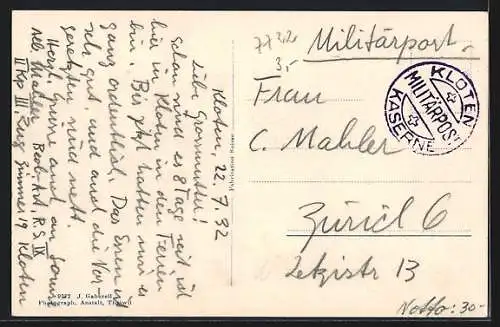 Kloten, 22. 7. 32
Liebe Grossmutter!
Schon sind es 8 Tage seit ich
hier in Kloten in den Ferien
bin. Bis jetzt hatten wir es
ganz ordentlich. Das Essen ist
sehr gut, und auch die Vor-
gesetzten sind nett.
Herzl. Grüsse auch an
Rekr. Mahler, Beob. Art. R.S. IX
II Kp III. Zug Zimmer 19 Kloten
J. Gaberell
Photograph. Anstalt, Thalwil
3.-
Militärpost.
KLOTEN
MILITÄRPOST
KASERNE
Frau
C. Mahler
Zürich 6
Letzistr. 13
Netto: 30.-